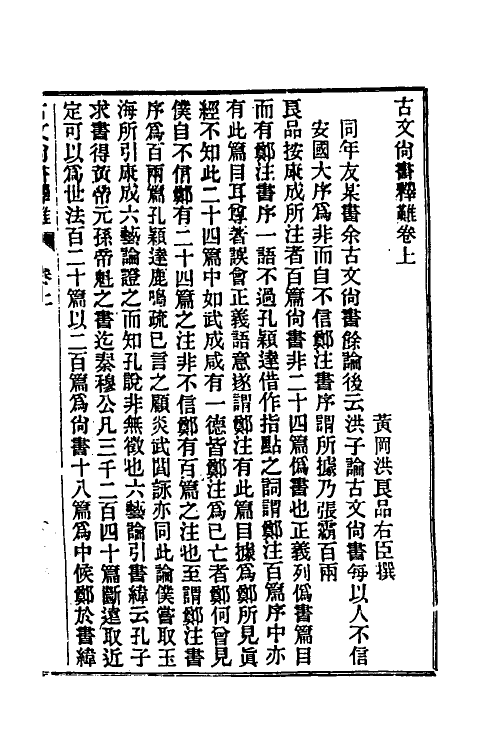 古文尙書釋難卷上
黃岡洪良品右臣撰
同年友某書余古文尙書餘論後云洪子論古文尙書每以人不信
安國大序爲非而自不信鄭注書序謂所據乃張霸百兩
良品按康成所注者百篇尙書非二十四篇僞書也正義列僞書篇目
而有鄭注書序一語不過孔穎達借作指點之詞謂鄭注百篇序中亦
有此篇目耳尊著誤會正義語意遂謂鄭注有此篇目據爲鄭所見眞
經不知此二十四篇中如武成咸有一德皆鄭注爲已亡者鄭何曾見
僕自不信鄭有二十四篇之注非不信鄭有百篇之注也至謂鄭注書
序爲百兩篇孔穎達鹿鳴疏已言之顧炎武閻詠亦同此論僕嘗取玉
海所引康成六藝論證之而知孔說非無徵也六藝論引書緯云孔子
求書得黃帝元孫帝魁之書迄秦穆公凡三千二百四十篇斷遠取近
定可以爲世法百二十篇以二百篇爲尙書十八篇爲中候鄭於書緯
古文尙書釋難
卷上